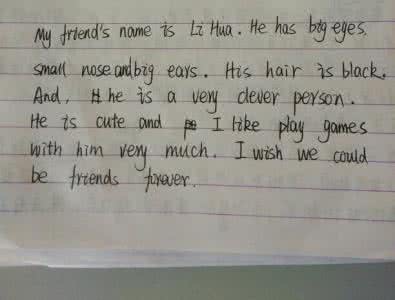 My friend's name is Li Hua. He has big eyes,
small nose and big ears. His hair is black.
And, he is a very clever person.
He is cute and I like play games
with him very much. I wish we could
be friends forever.